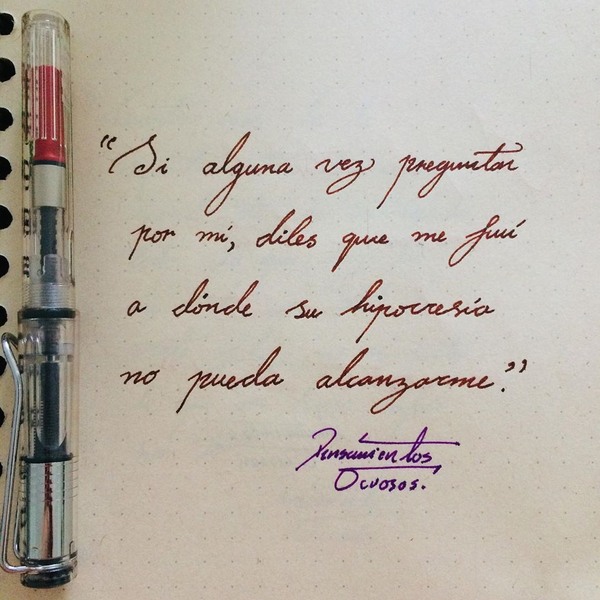 “Si alguna vez preguntan
por mí, diles que me fuí
a dónde su hipocresía
no pueda alcanzarme.”
Pensamientos
Ocuosos.